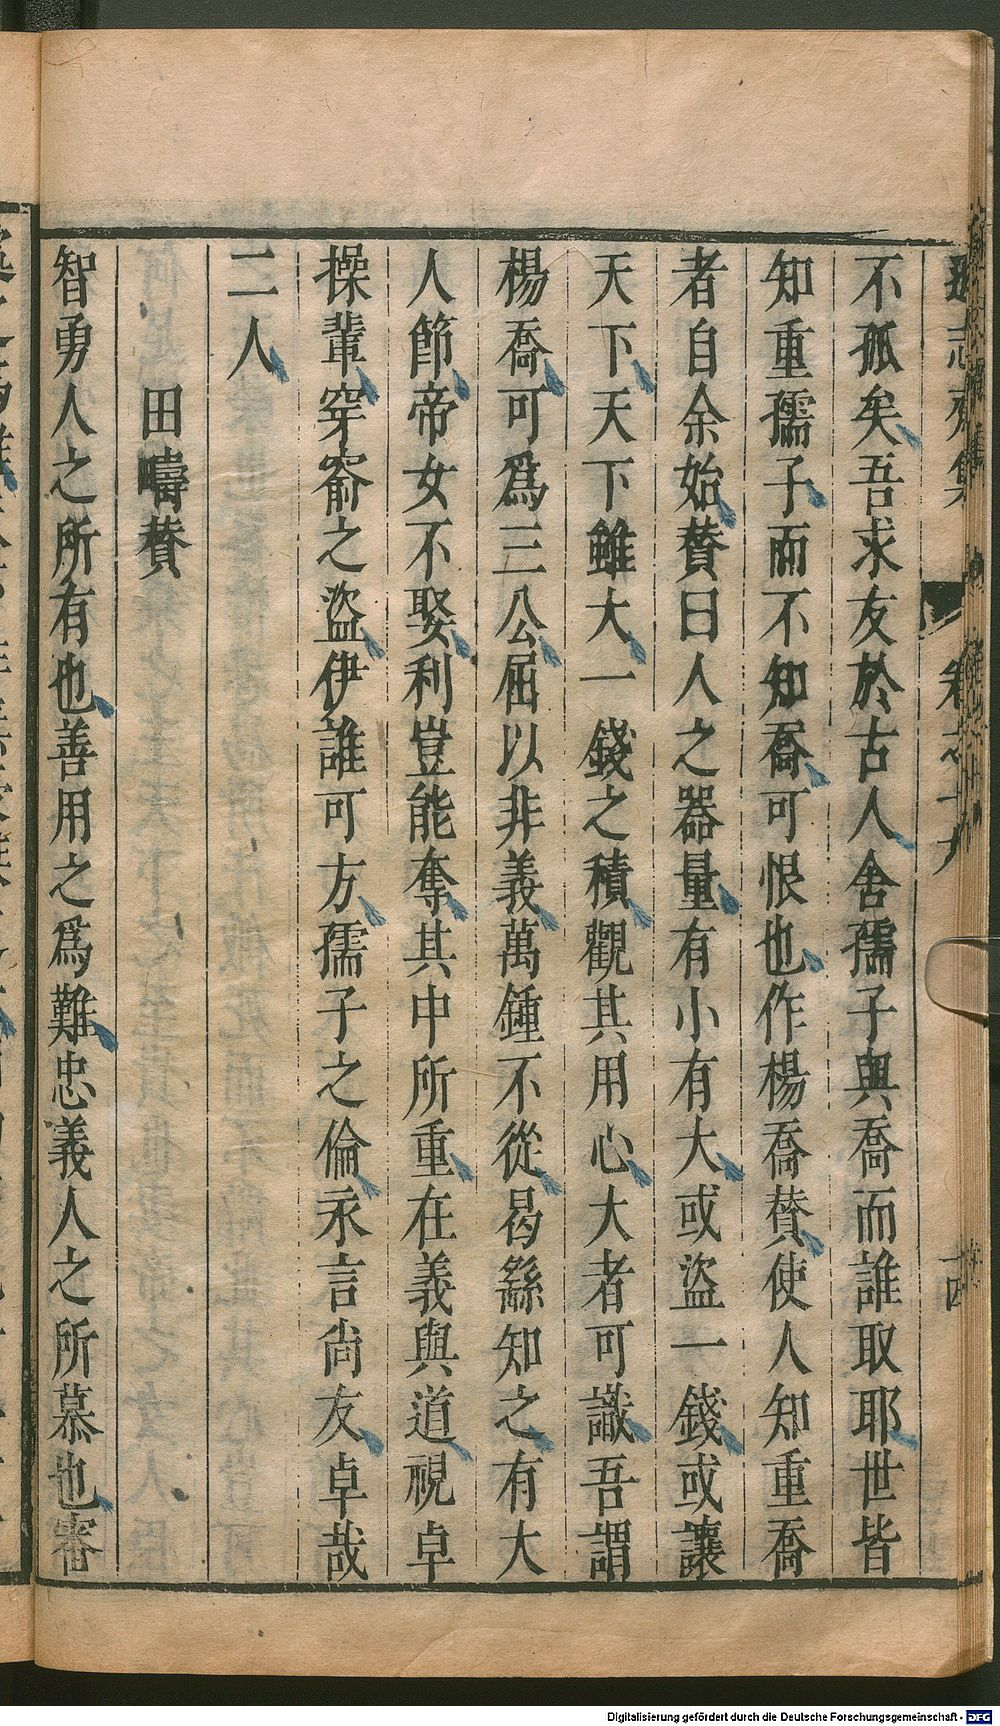 遜志齋集 卷之十九 十四
不孤矣吾求友於古人舍孺子與喬而誰取耶世皆
知重孺子而不知喬可恨也作楊喬贊使人知重喬
者自余始贊曰人之器量有小有大或盜一錢或讓
天下天下雖大一錢之積觀其用心大者可識吾謂
楊喬可爲三公屈以非義萬鍾不從曷繇知之有大
人節帝女不娶利豈能奪其中所重在義與道視卓
操輩穿窬之盜伊誰可方孺子之倫永言尚友卓哉
二人
田疇贊
智勇人之所有也善用之爲難忠義人之所慕也審
Digitalisierung gefördert durch die Deutsche Forschungsgemeinschaft - DFG